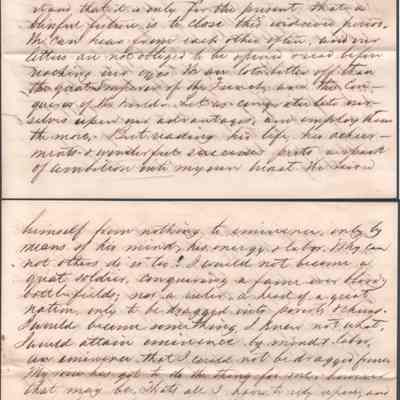 means that it is only for the present that a
future is to close this
We can hear from each other often, and our
letters are not obliged to be opened & read before
reaching our eyes. We are lots better off than
the great emperor of the French, and the Con-
queror of the World. Let us congratulate our
selves upon our advantages, and employ them
the more. But reading his life, his achieve-
ments & wonderful success puts a spark
of ambition into my own breast. He rised
himself from nothing to eminence, only by
means of his mind, his energy & labor. Why can
not others do so too? I would not become a
great soldier, conquering a fame over bloody
battlefields; nor a ruler, a head of a great
nation, only to be dragged into poverty &
I would become something, I know not what.
I would attain eminence by mind & labor,
an eminence that I could not be dragged from.
My own has got to do the thing for me, however
that may be. That's all I have to rely upon, and